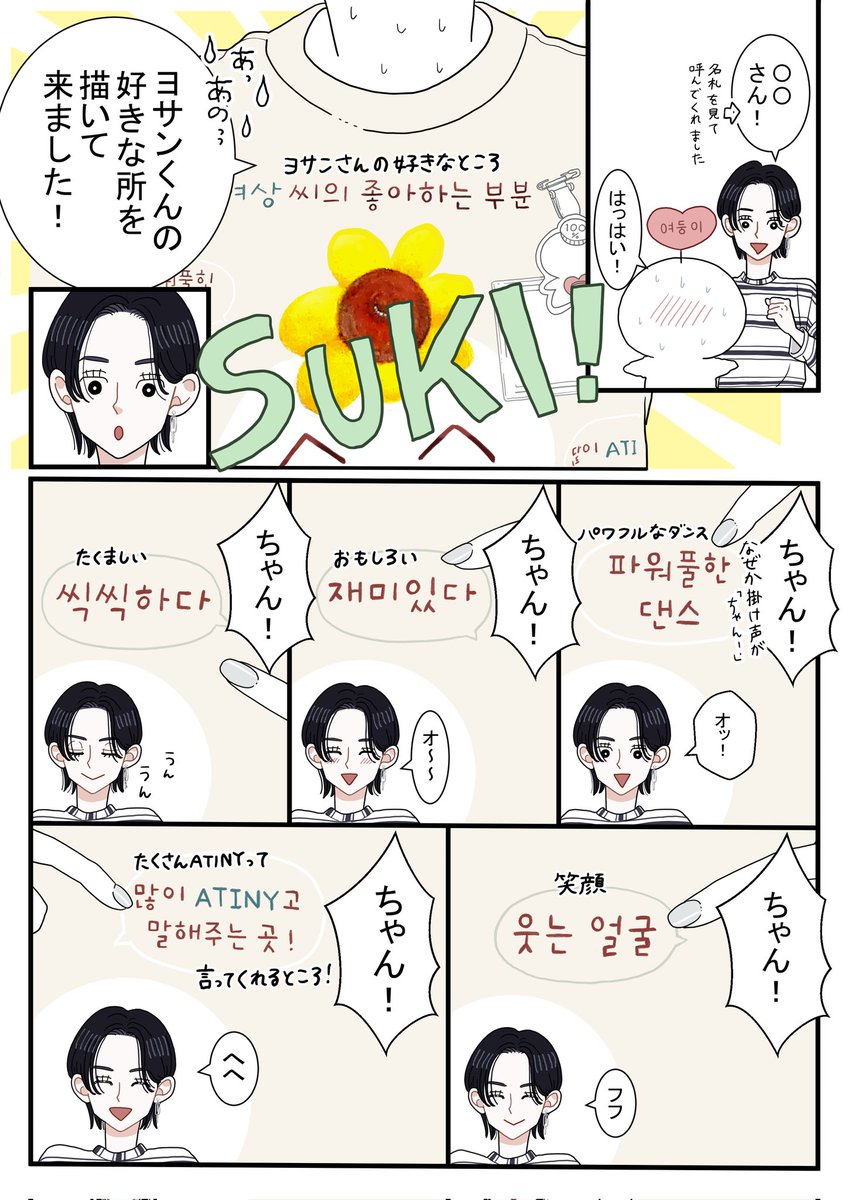 〇〇
さん！
名札を見て
呼んでくれました
はっはい！
여둥이
あっ
あのっ
ヨサンくんの
好きな所を
描いて
来ました！
ヨサンさんの好きなところ
여상 씨의 좋아하는 부분
100%
SUKI!
ATI
ちゃん！
なぜか掛け声が
「ちゃんー」
パワフルなダンス
파워풀한
댄스
オッ！
ちゃん！
おもしろい
재미있다
オ〜〜
ちゃん！
たくましい
씩씩하다
うん
うん
ちゃん！
笑顔
웃는 얼굴
フフ
ちゃん！
たくさんATINYって
많이 ATINY고
말해주는 곳!
言ってくれるところ！
へへ